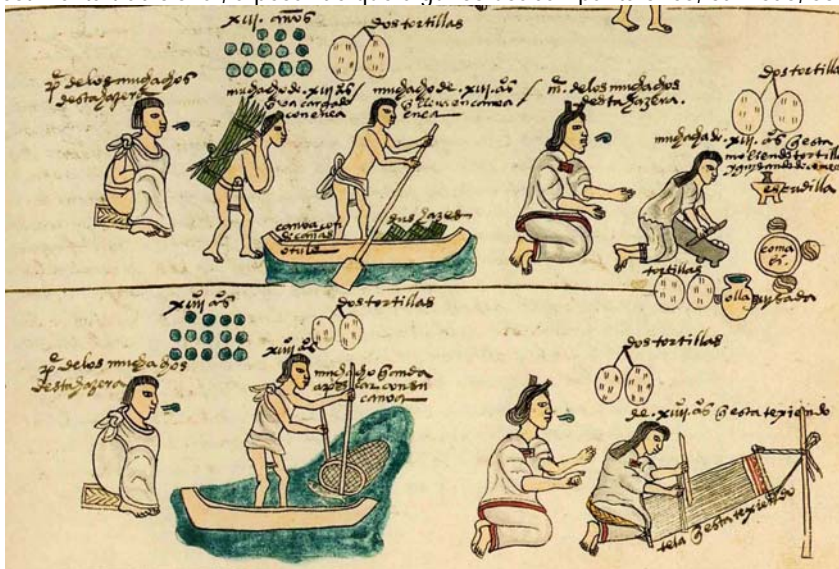 xiii. años
dos tortillas
pe. delos muchachos
destahazera
muchacho de. xiii. as
q̄ va cargado
con enea
muchacho de. xiii. as
q̄ lleva en canoa
enea
me. delos muchachos
destahazera.
dos tortillas
muchacha de. xiii. as q̄ esta
moliendo tortillas
escudilla
canoa con
dos hazes
de cañas
o tule
comal
tortillas
olla guisada
xiiii. as
dos tortillas
pe. delos muchachos
destahazera
xiiii. as
muchacho q̄ anda
a pescar con su
canoa
dos tortillas
de. xiiii. as q̄ esta texiendo
tela q̄ esta texiendo